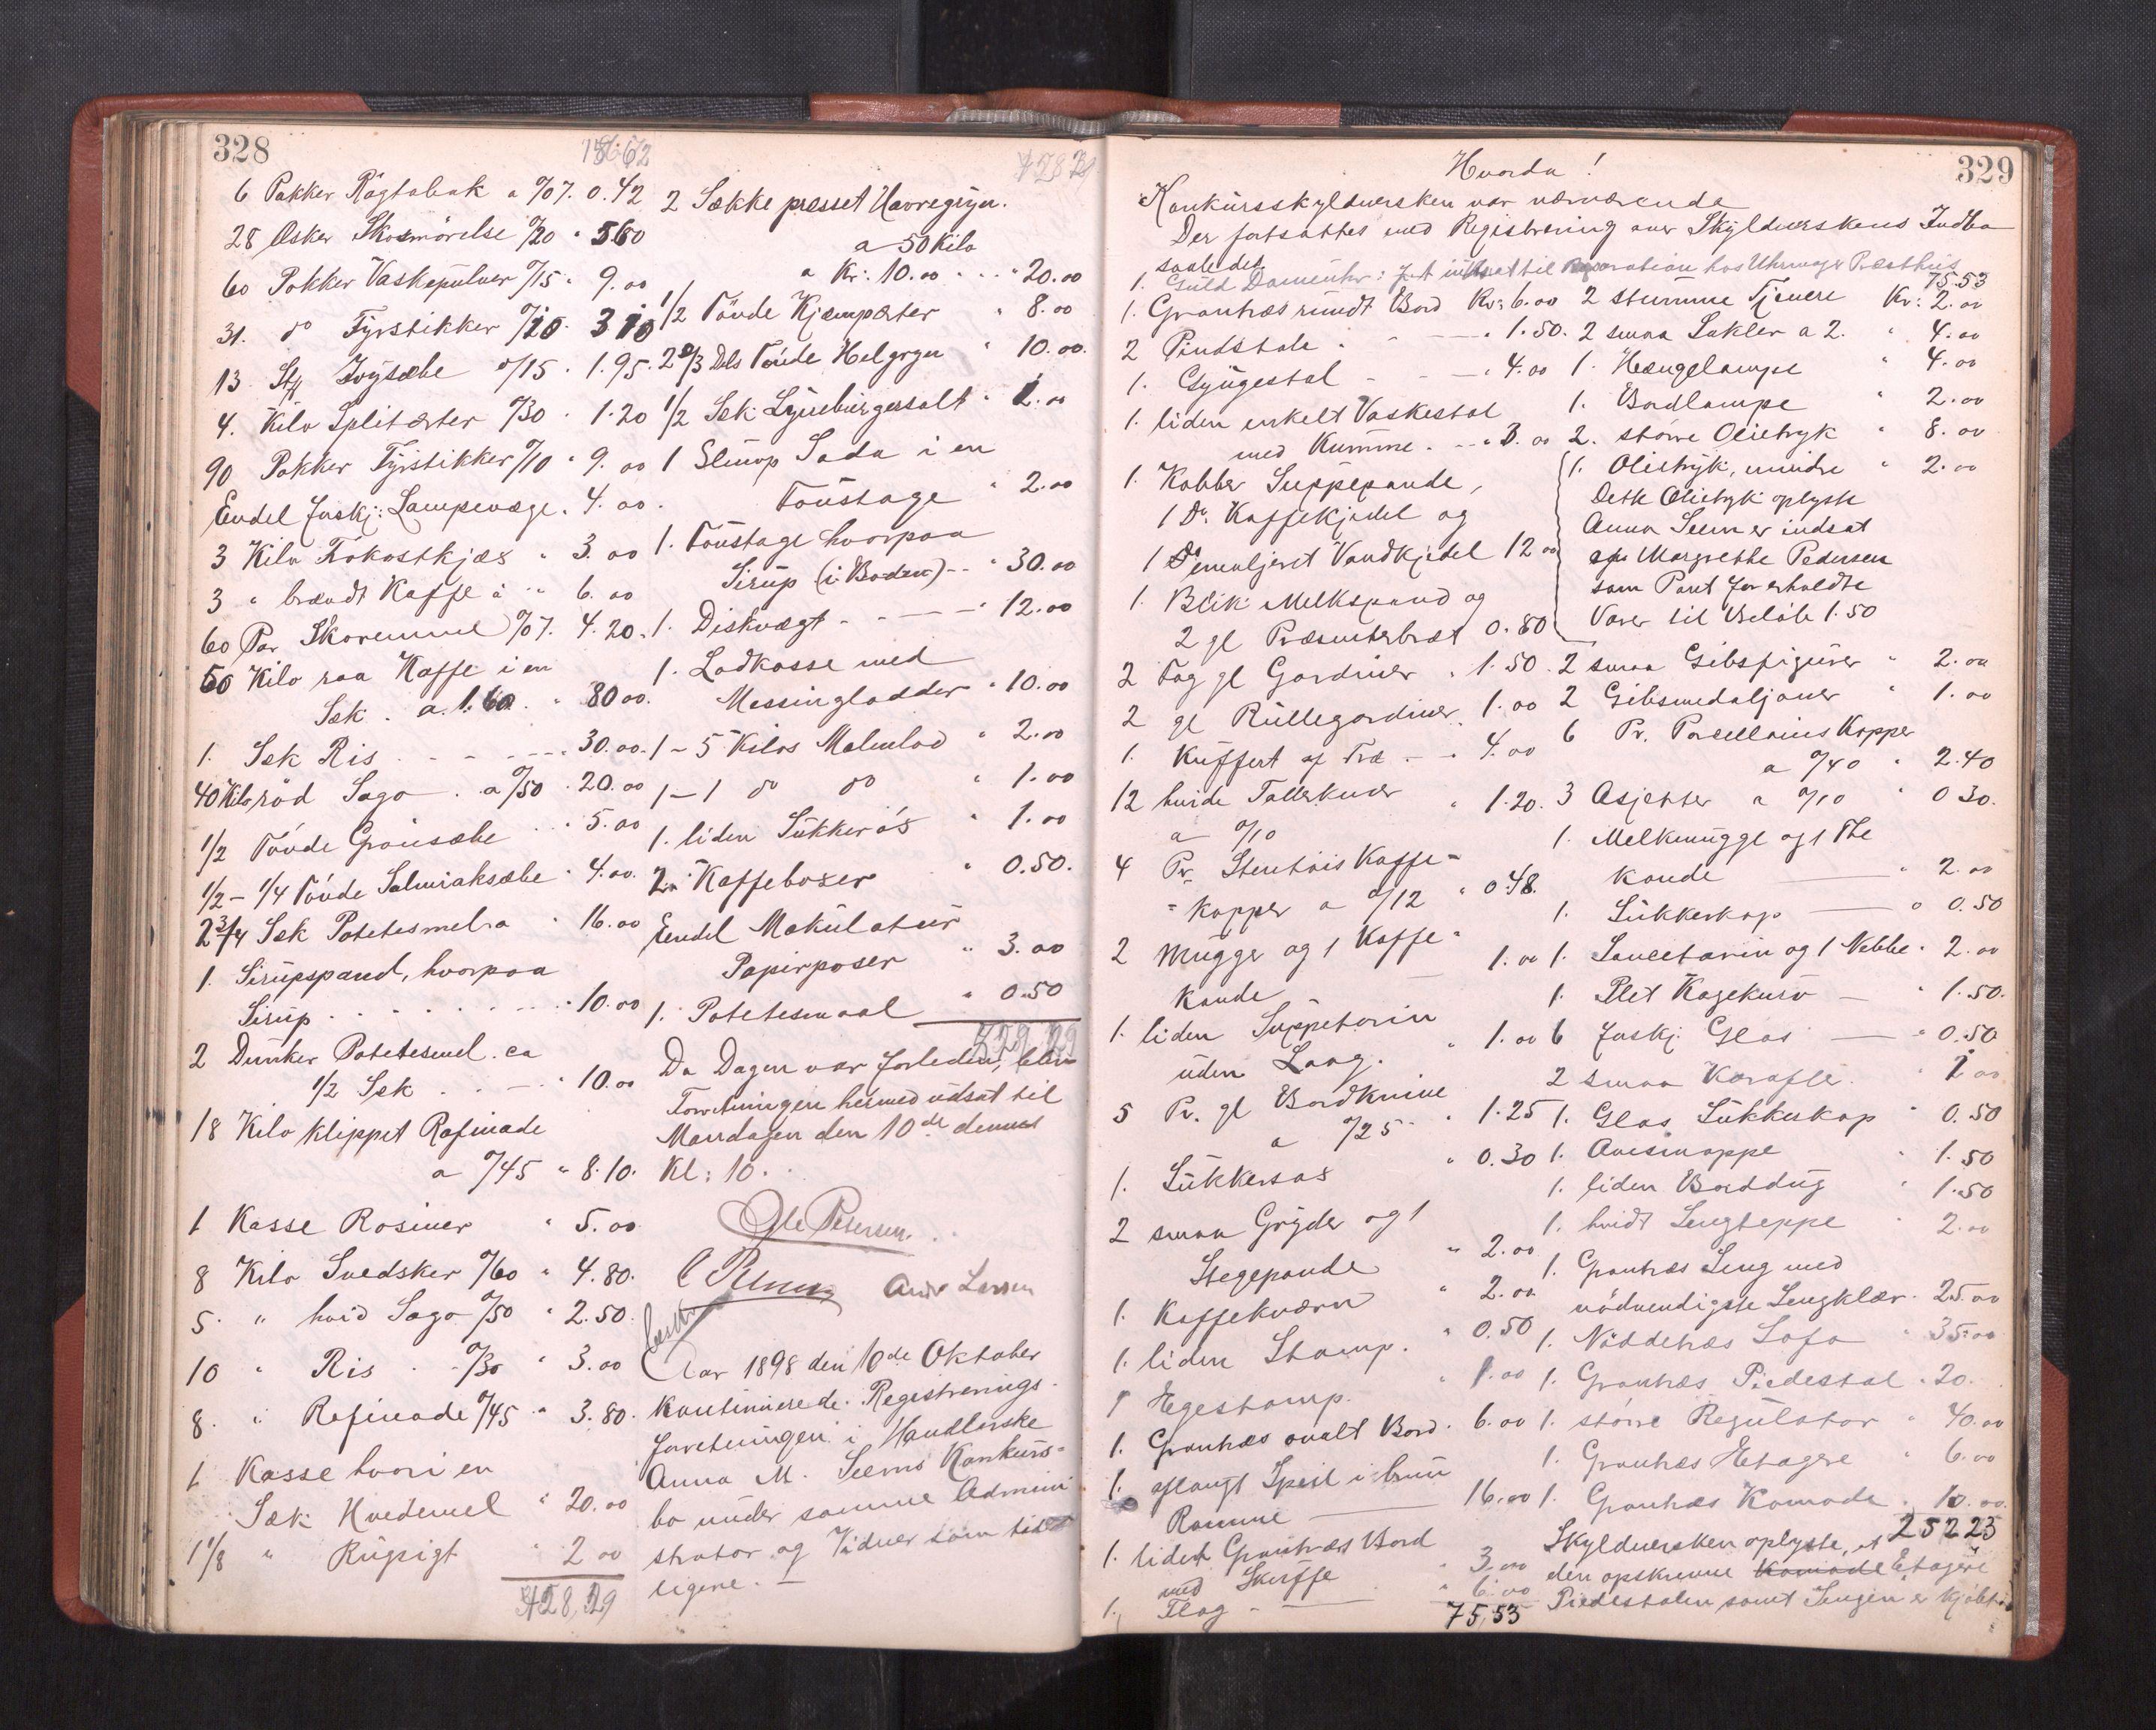 328
6 Pakker Røgtobak a 0/07. 0.42
28 Æsker Skosmörelse 0/20 " 560
60 Pakker Vaskepulver 0/15 " 9.00
31. do Fyrstikker 0/10 " 3 10
13 Stkr Toysæbe 0/15 . 1.95.
4. Kilo Splitærter 0/30 . 1.20
90 Pakker Fyrstikker 0/10 " 9.00
Endel forskj: Lampevæge. 4.00.
3 Kilo Kokostkjæs " 3.00
3 " brændt Kaffe a " 6.00
60 Par Skoremme 0/07. 4.20.
50 Kilo raa Kaffe i en
Sæk . a 1.60 " 80 00.
1. Sæk Ris - - - 30.00.
40 Kilo röd Sago . a 0/50 . 20.00
1/2 Tönde Grönsæbe . . 5.00
1/2 - 1/4 Tönde Salmiaksæbe " 4.00.
2 3/4 Sæk Potetesmel a " 16.00
1. Sirupspand, hvorpaa
Sirup . . . . . . . 10.00
2 Dunker Potetesmel. ca
1/2 Sæk . . - " 10.00
18 Kilo klippet Rafinade
a 0/45 " 8.10.
1 Kasse Rosiner " 5.00
8 Kilo Svedsker 0/60 " 4.80.
5. " hvid Sago 0/50 " 2.50.
10 " Ris . - 0/30 " 3.00
8. " Rafinade 0/45 " 3.80.
1 Kasse hvori en
Sæk Hvedemel " 20.00
1 1/8 " Rugsigt " 2 00
428,29
2 Sække presset Havregryn.
a 50 Kilo
a Kr: 10.00 . . . " 20.00
1/2 Tönde Kjempærter " 8.00
2 2/3 Dels Tönde Helgryn " 10.00.
1/2 Sæk Lyneburgersalt " 1.00
1 Slump Soda i en
Foustage " 2.00
1. Foustage hvorpaa
Sirup (i Boden) - - " 30.00
1. Diskvægt - - - - " 12.00
1. Lodkasse med
Messinglodder " 10.00
1 - 5 Kilos Malmlod " 2.00
1 - 1 do do " 1.00
1. liden Sukkerös " 1.00
2. Kaffeboxer " 0.50.
Endel Makulatur
Papirposer " 3.00
1. Potetesmaal " 0.50
529,29
Da Dagen var forleden, blev
Forretningen hermed udsat til
Mandagen den 10de dennes
Kl: 10.
Ole Petersen.
Andr Larsen
Aar 1898 den 10de Oktober
kontinuerede Registrerings-
forretningen i Handlerske
Anna M. Seems Konkurs=
bo under samme Admini
strator og Vidner som tid
ligere. -
329
Hvorda!
Konkursskyldnersken var nærværende
Der fortsattes med Registrering over Skyldnerskens Indbo
saaledes
1. Guld Dameuhr: indsat til Reparation hos Uhrmager Præsthus
1. Grantræs rundt Bord Kr: 6.00
2 Pindstole . - - " 1.50.
1. Gyngestol - - - " 4.00
1. liden enkelt Vaskestol
med Kumme. - - " 3.00
1. Kobber Suppepande,
1 Do Kaffekjedel og
1 Do emaljeret Vandkjedel 12 00
1. Blik Melkspand og
2 gl Præsenterbræt 0.80
2 Fag gl Gardiner " 1.50.
2 gl Rullegardiner 1.00
1. Kuffert af Træ - " 4.00
12 hvide Tallerkner
a 0/10 " 1.20.
4 Pr. Stentöis Kaffe=
=kopper a 0/12 " 0.48.
2 Mugger og 1 Kaffe=
kande 1.00
1. liden Suppeterin
uden Laag. " 1.00
5 Pr. gl Bordknive
a 0/25 " 1.25
1. Sukkersax " 0.30
2 smaa Gryder og 1
Stegepande " 2.00
1. Kaffekværn " 2.00
1. liden Stamp. " 0.50
1 Egestamp. " 1.00
1. Grantræs ovalt Bord. 6.00
1. aflangt Speil i brun
Ramme 16.00
1. lidet Grantræs Bord
med Skuffe " 3.00
1. Flag - " 6.00
75,53
75.53
2 stumme Tjenere Kr: 2.00
2 smaa Lukter a 2. " 4.00
1. Hængelampe " 4.00
1. Bordlampe " 2.00
2. större Olietryk " 8.00
1. Olietryk, mindre " 2.00
Dette Olietryk oplyste
Anna Seem er indsat
af Margrethe Pedersen
som Pant for erholdte
Varer til Belöb 1.50
2 smaa Gibsfigurer " 2.00
2 Gibsmedaljoner " 1.00
6 Pr. Porcellains Kopper
a 0/40 " 2.40
3 Asjetter a 0/10 " 0 30.
1. Melkmugge og 1 The
kande " 2.00
1. Sukkerkop " 0.50
1. Sauceterin og 1 Nebbe " 2.00
1. Plet Kagekurv - " 1.50.
6 forskj. Glas - " 0.50
2 smaa Karafle. " 1 00
1. Glas Sukkerkop " 0.50
1. Avismappe " 1.50
1. liden Borddug " 1.50
1. hvidt Sengteppe " 2.00
1. Grantræs Seng med
nödvendigste Sengklær. 25.00
1. Nöddetræs Sofa " 35.00
1. Grantræs Piedestal . 20.
1. större Regulator " 40.00
1. Grantræs Etagere " 6.00
1. Grantræs Komode " 10.00.
252 23
Skyldnersken oplyste, at
den opskrevne Komode Etagere
Piedestalen samt Sengen er kjöbt